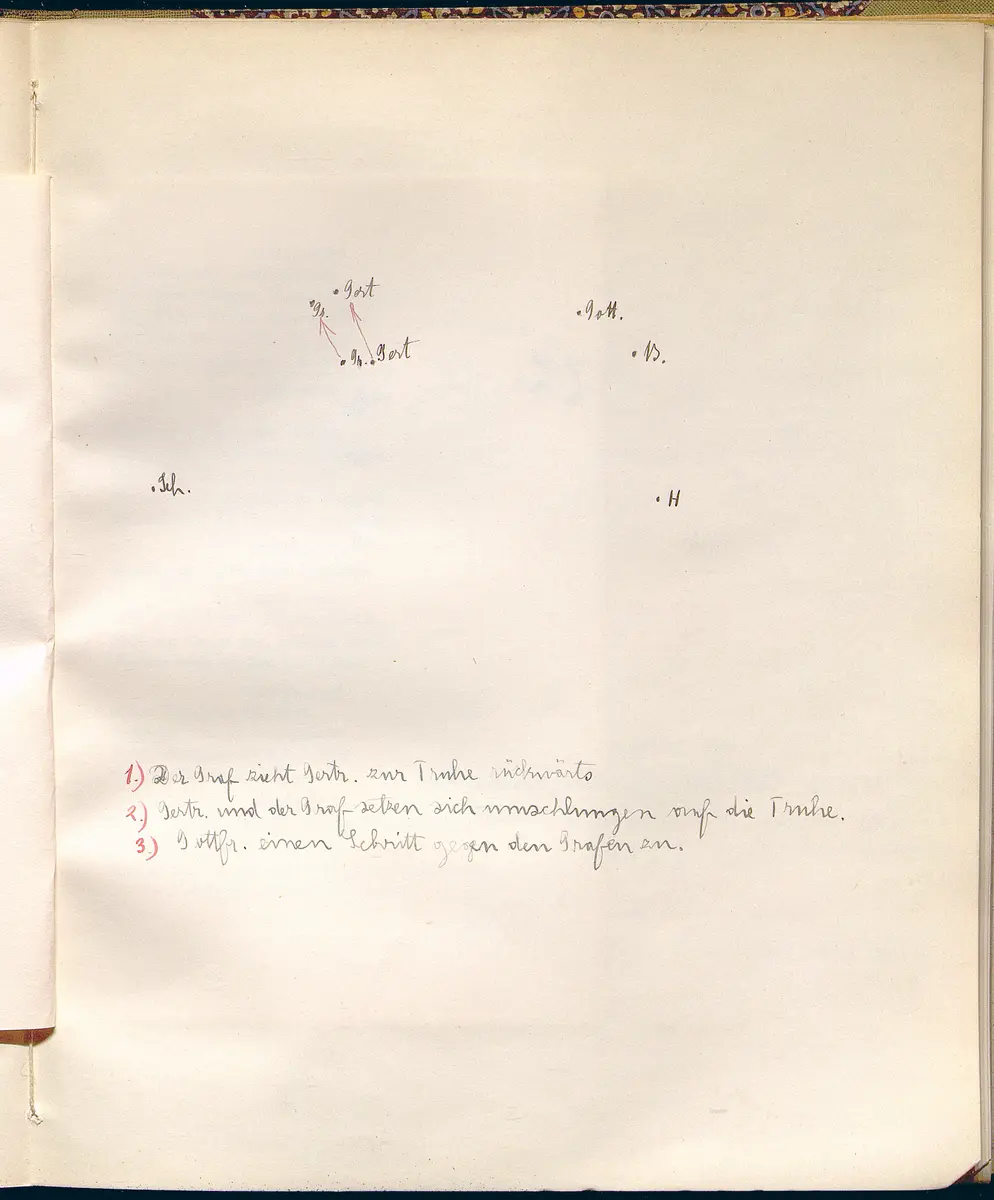 Gert
Gr.
Gott.
Gr. Gert
B.
Sch.
H
1.) Der Graf zieht Gertr. zur Truhe rückwärts
2.) Gertr. und der Graf setzen sich umschlungen auf die Truhe.
3.) Gottfr. einen Schritt gegen den Grafen zu.